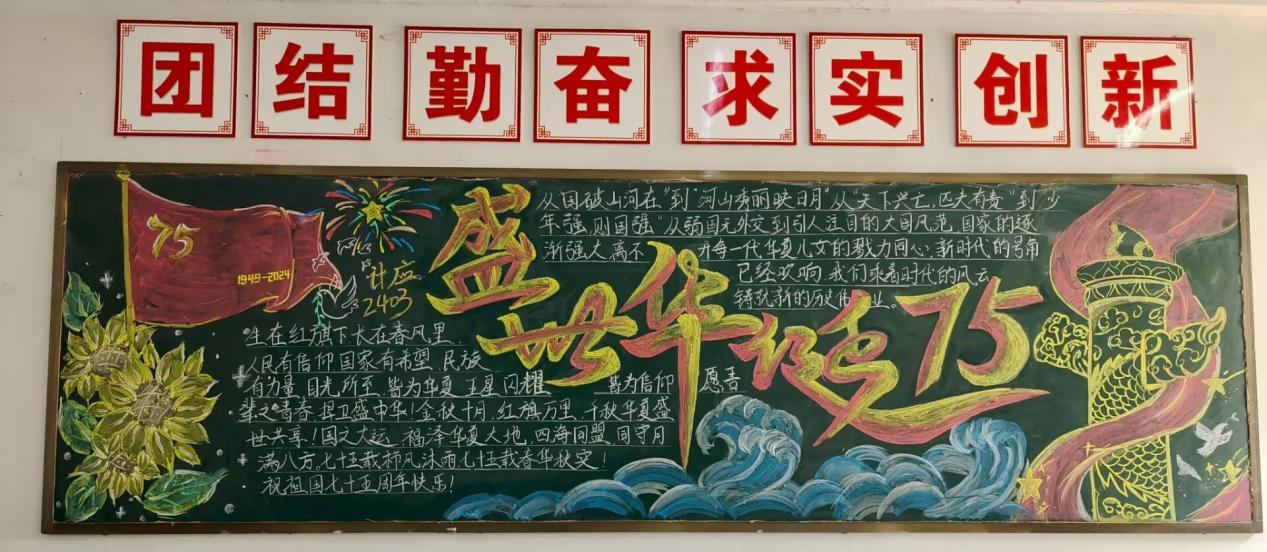 团结 勤奋 求实 创新
75
1949-2024
计应
2403
盛世华诞75
从"国破山河在"到"河山秀丽映日月"从"天下兴亡,匹夫有责"到"少
年强,则国强"从弱国无外交到引人注目的大国风范,国家的逐
渐强大离不开每一代华夏儿女的戮力同心,新时代的号角
已经吹响,我们乘着时代的风云
铸就新的历史伟业。
生在红旗下长在春风里
人民有信仰国家有希望,民族
有力量,目光所至,皆为华夏,五星闪耀 皆为信仰 愿吾
辈之青春 捍卫盛中华!金秋十月,红旗万里,千秋华夏盛
世共享!国之大运,福泽华夏大地,四海同盟,同守月
满八方。七十五载栉风沐雨七十五载春华秋实!
祝祖国七十五周年快乐!